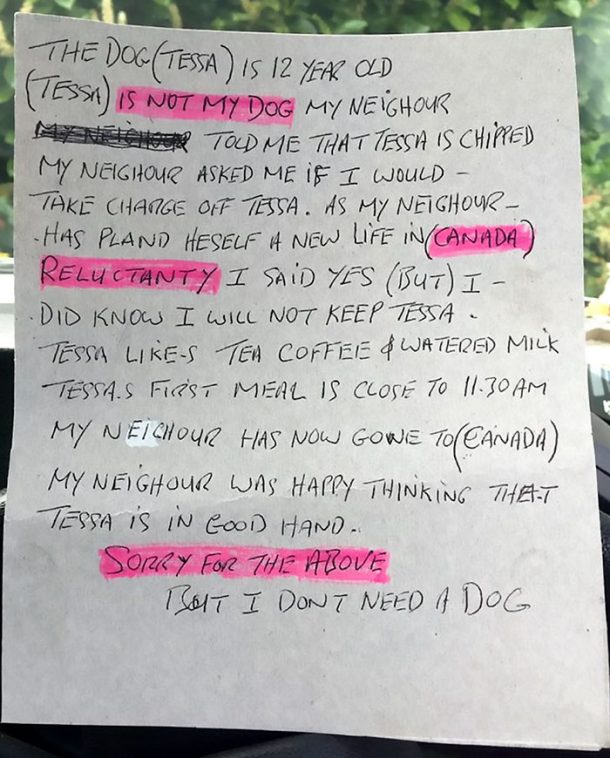 THE DOG (TESSA) IS 12 YEAR OLD
(TESSA) IS NOT MY DOG MY NEIGHOUR
MY NEIGHOUR TOLD ME THAT TESSA IS CHIPPED
MY NEIGHOUR ASKED ME IF I WOULD -
TAKE CHARGE OFF TESSA. AS MY NEIGHOUR -
. HAS PLAND HESELF A NEW LIFE IN (CANADA)
RELUCTANTY I SAID YES (BUT) I -
. DID KNOW I WILL NOT KEEP TESSA .
TESSA LIKE-S TEA COFFEE & WATERED MILK
TESSA.S FIRST MEAL IS CLOSE TO 11.30 AM
MY NEICHOUR HAS NOW GONE TO (CANADA)
MY NEIGHOUR WAS HAPPY THINKING THEAT
TESSA IS IN GOOD HAND.
SORRY FOR THE ABOVE
BUT I DONT NEED A DOG